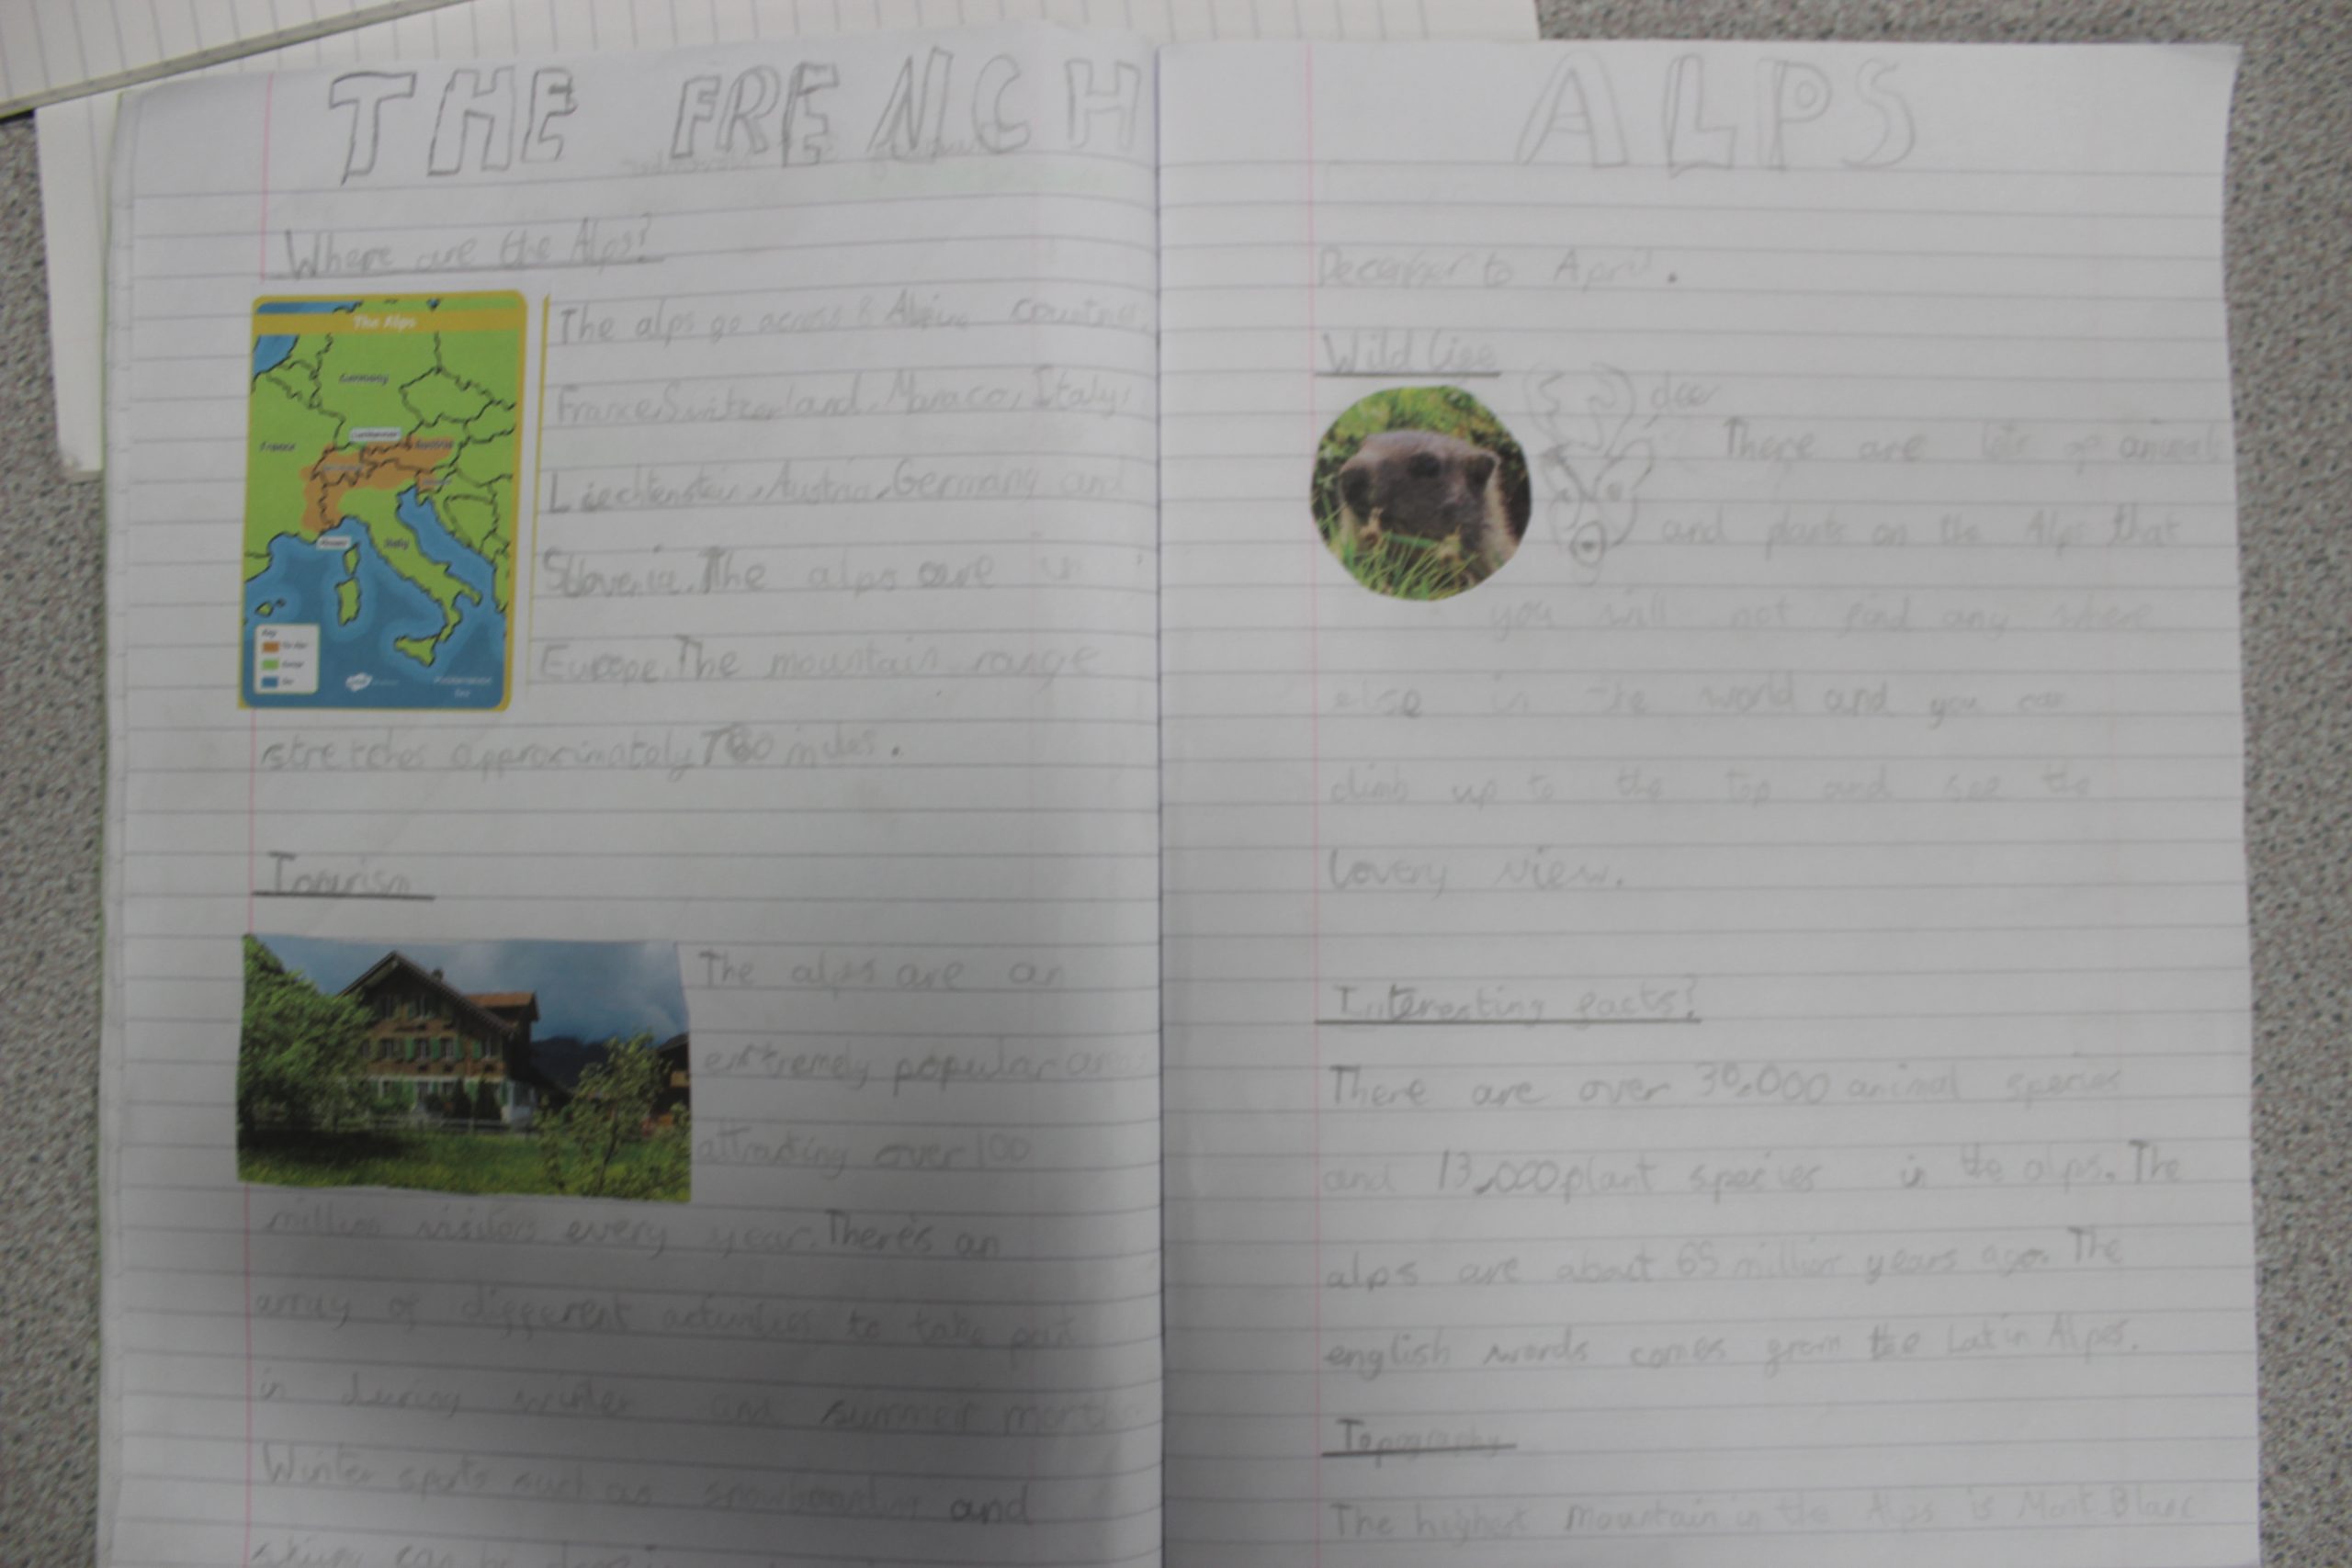 THE FRENCH ALPS
Where are the Alps?
The Alps
Germany
France
Italy
Key
The alps go across 8 Alpine countries.
France, Switzerland, Monaco, Italy,
Liechtenstein, Austria, Germany and
Slovenia. The alps are in
Europe. The mountain range
stretches approximately 780 miles.
Tourism
The alps are an
extremely popular area
attracting over 100
million visitors every year. There's an
array of different activities to take part
in during winter and summer
Winter sports such as and
skiing can be
December to April.
Wild life
deer
There are lots of animals
and plants on the Alps that
you will not find any where
else in the world and you
climb up to the top and see the
lovery view.
Interesting facts?
There are over 30,000 animal species
and 13,000 plant species in the alps. The
alps are about 65 million years ago. The
english words comes from the Latin Alpes.
Topography
The highest mountain in the Alps is Mont Blanc